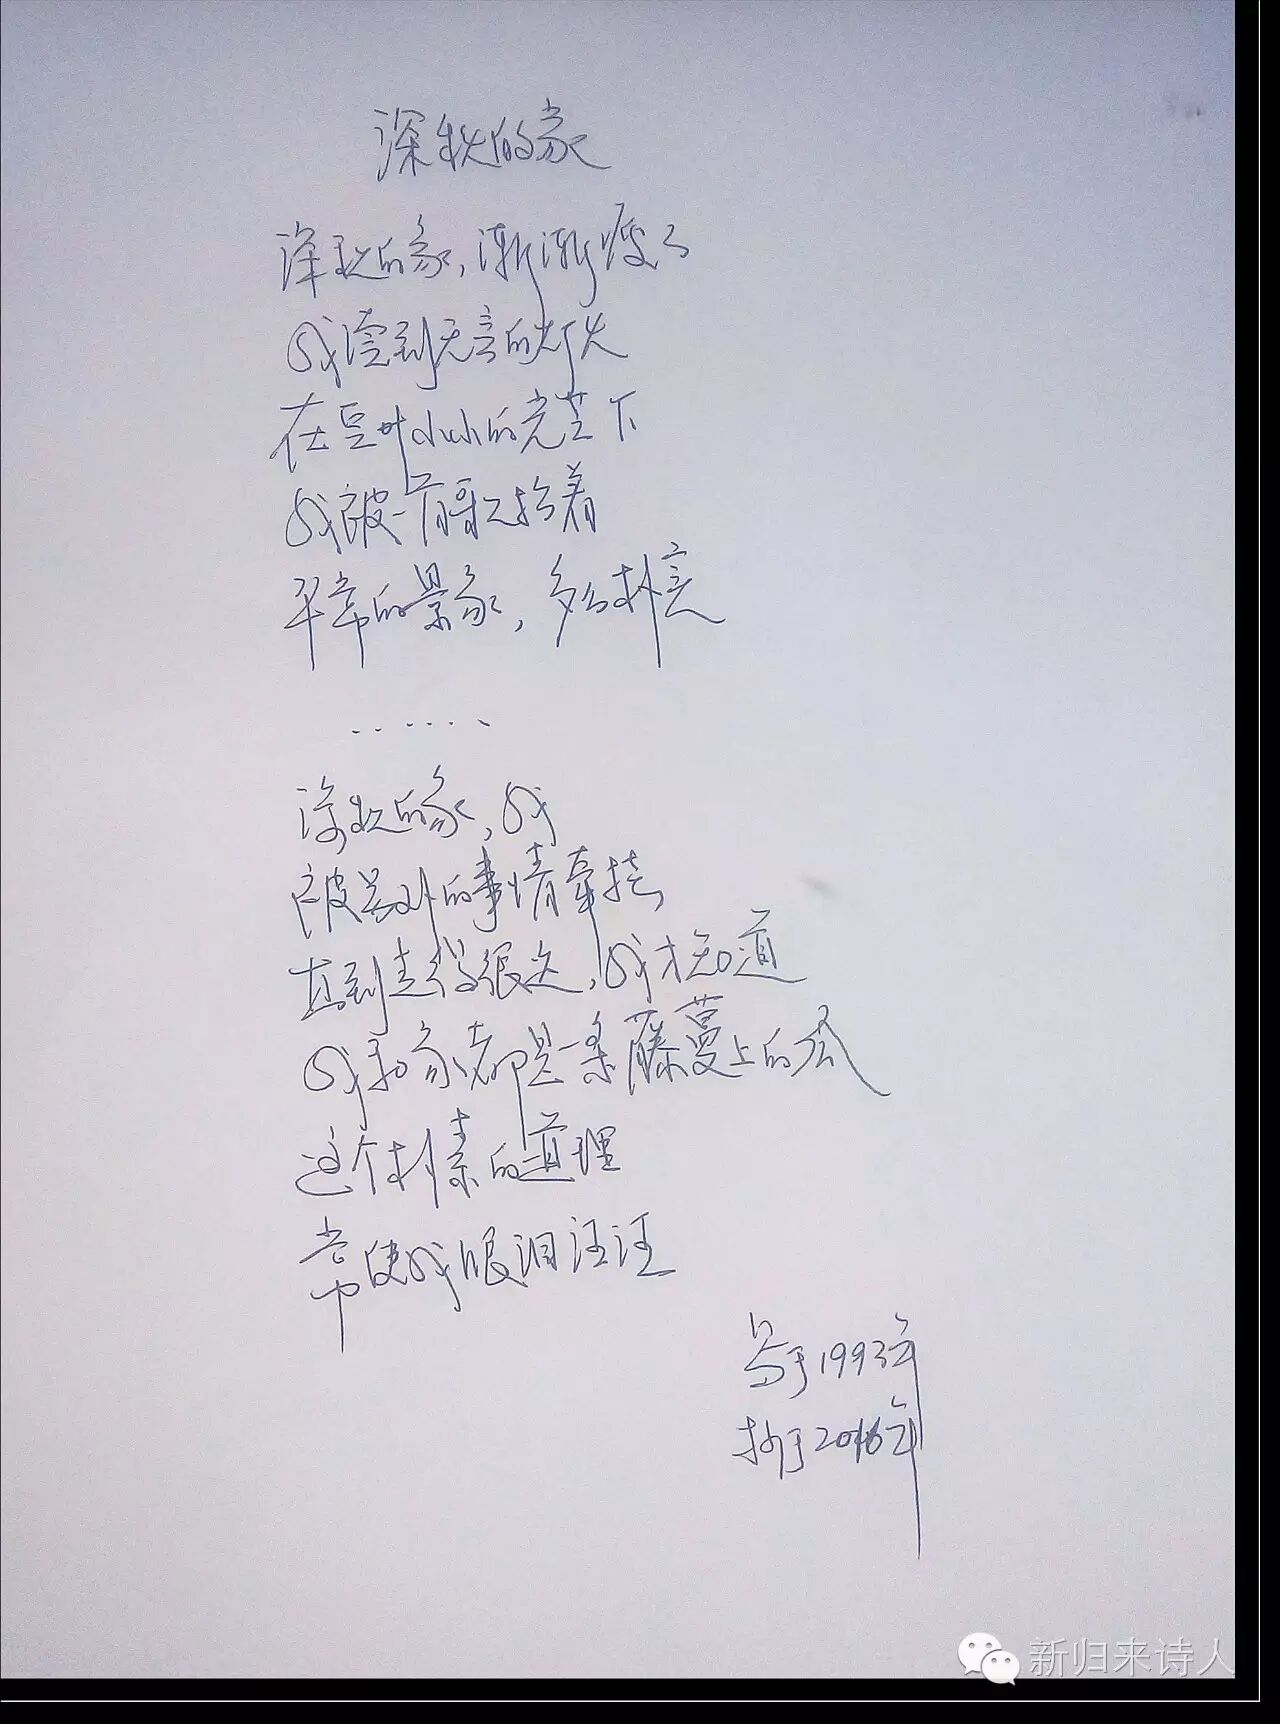 深秋的家
深秋的家,渐渐瘦了
我读到无言的灯火
在豆叶小小的光芒下
我被一首歌抬着
平常的景象,多么朴实
.......
深秋的家,我
被另外的事情牵挂
直到走得很远,我才知道
我和家都是一条藤蔓上的瓜
这个朴素的道理
常使我眼泪汪汪
写于1993年
抄于2016年
新归来诗人